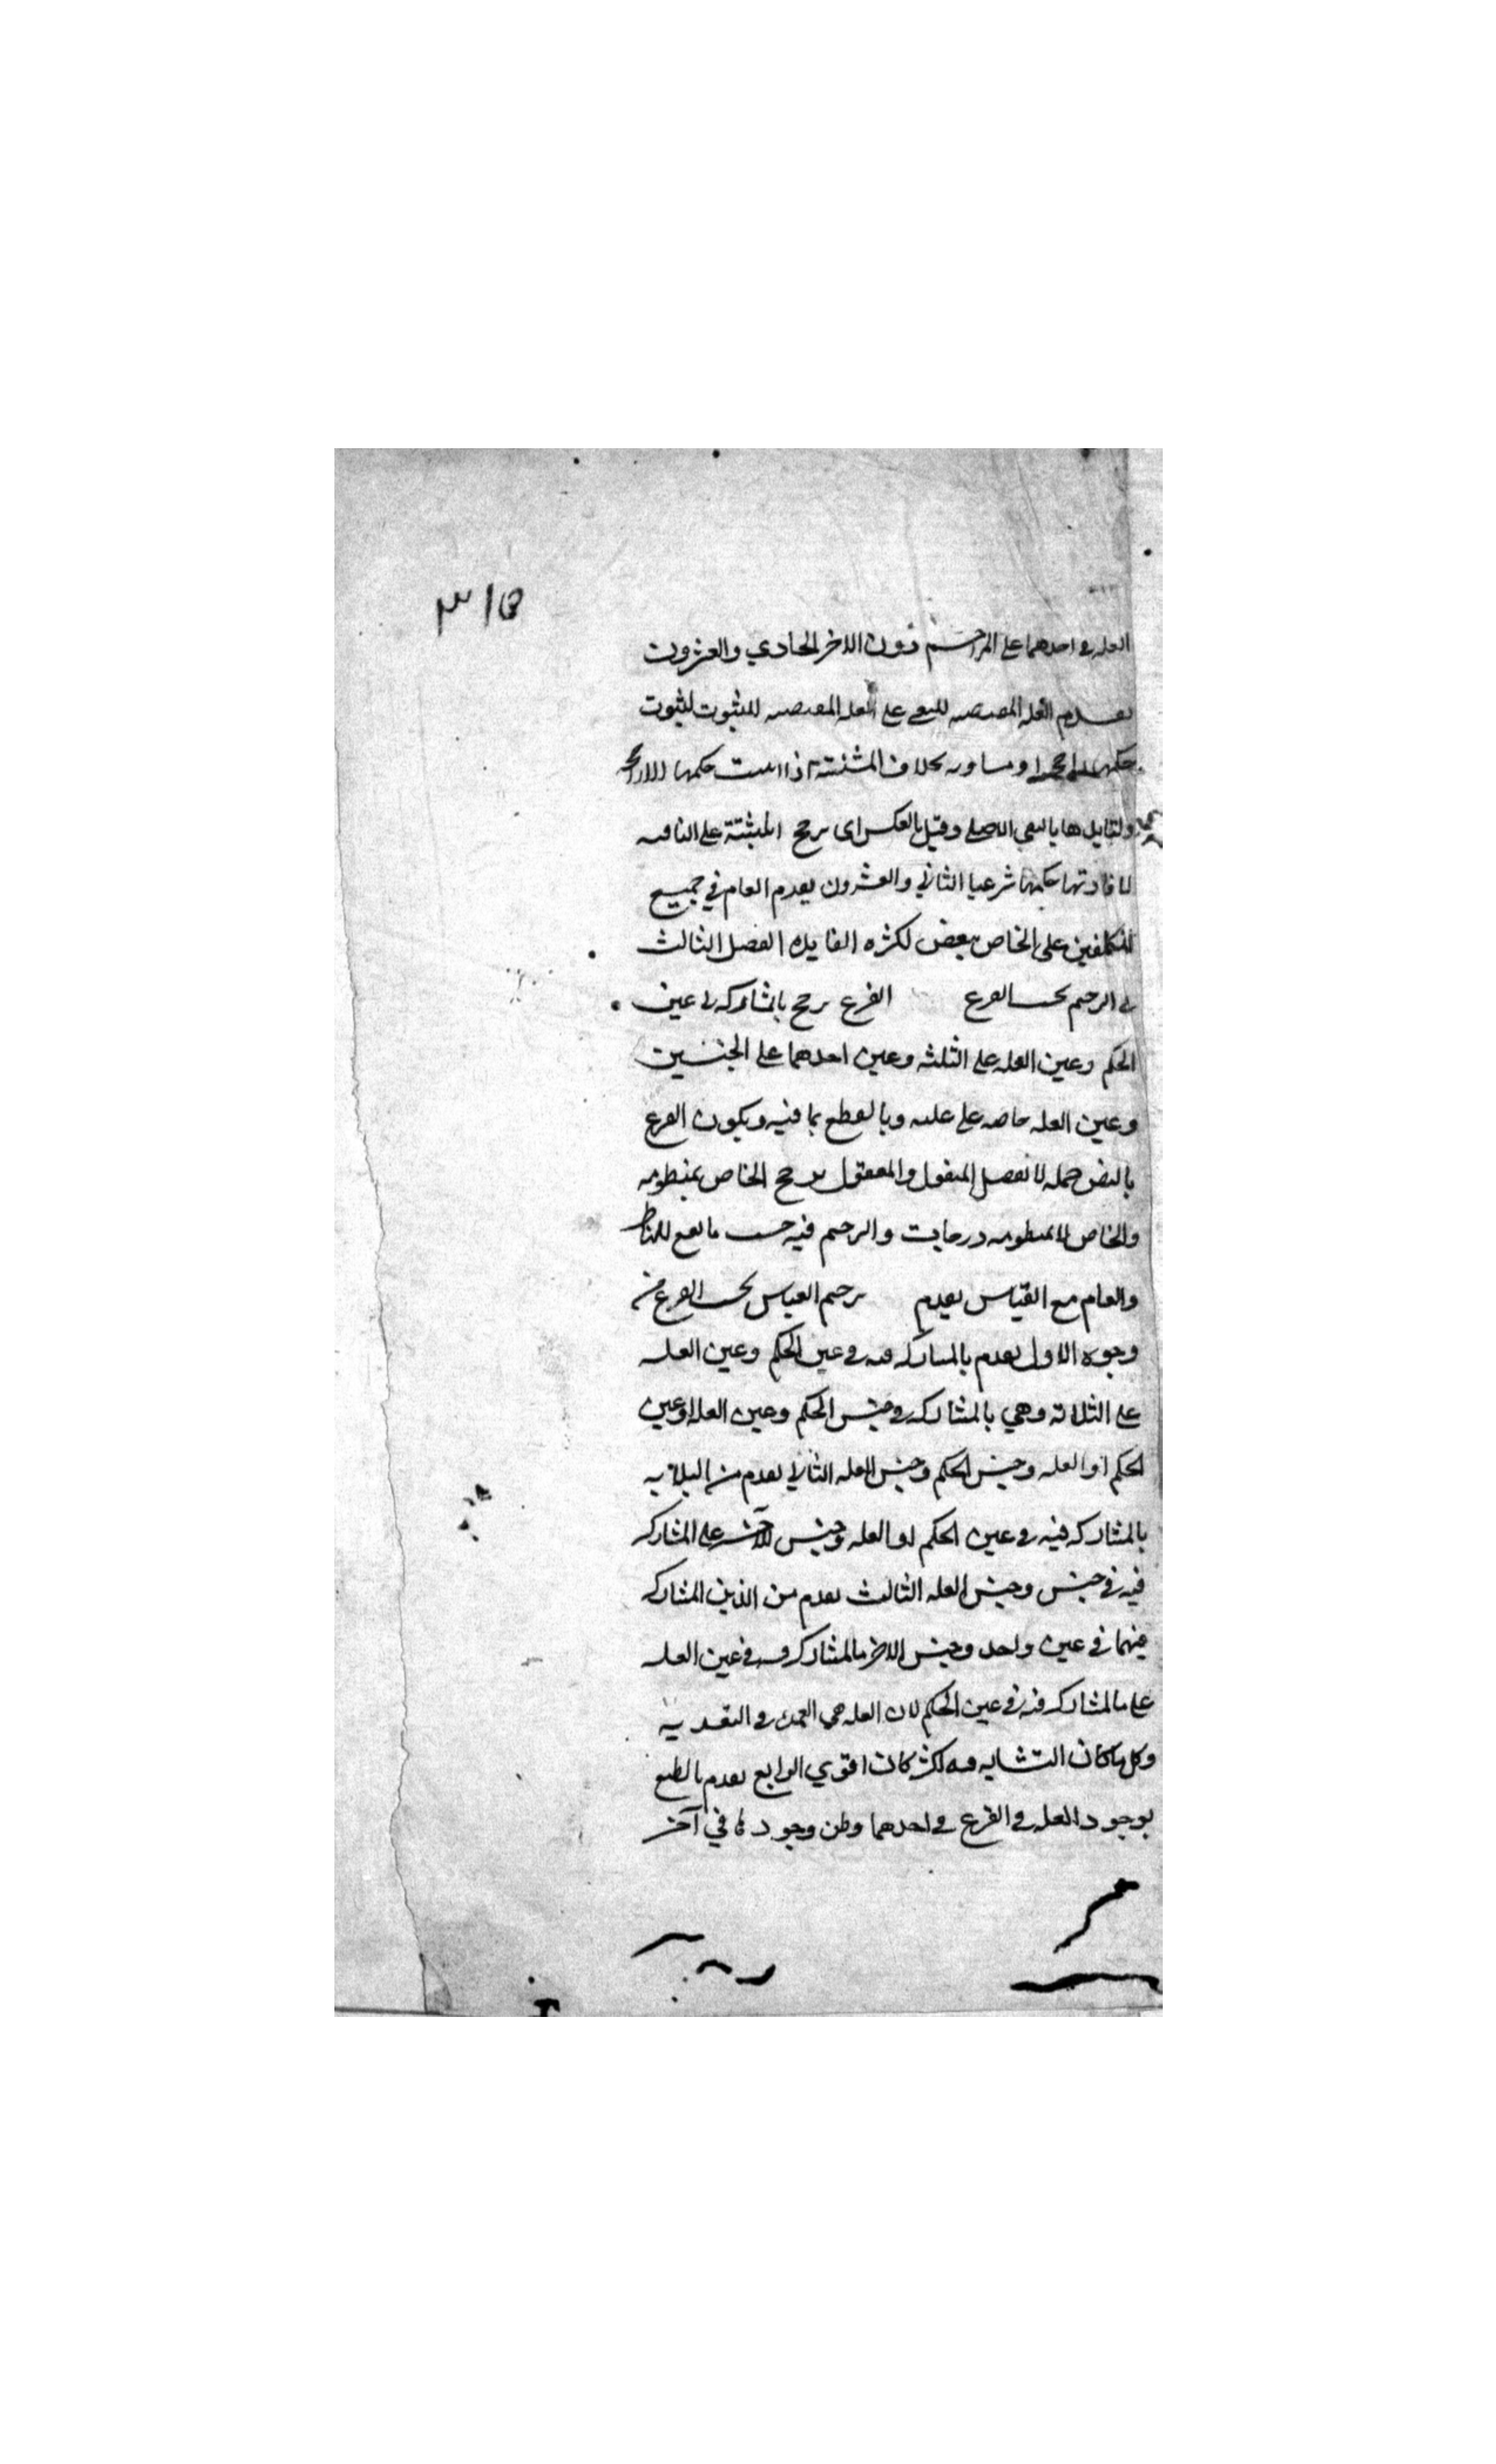 ٣١٥
العله في احدهما على المزاحم دون الاخر الحادي والعشرون
يقدم العله المقتضيه للنفي على العله المقتضيه للثبوت لثبوت
حكمها راجحا او مساويه بخلاف المثبتة اذا اثبت حكمها
ولتايدها بالنفي الاصلي وقيل بالعكس اى يرجح المثبتة على النافيه
لافادتها حكما شرعيا الثاني والعشرون يقدم العام في جميع
المكلفين على الخاص ببعض لكثره الفايده الفصل الثالث
في الترجيح بحسب الفرع الفرع يرجح بالمشاركه في عين
الحكم وعين العله على الثلثه وعين احدهما على الجنسين
وعين العله خاصه على عكسه وبالقطع بها فيه ويكون الفرع
بالنص جمله لا تفصيل المنقول والمعقول يرجح الخاص بمنطوقه
والخاص لا بمنطوقه درجات والترجيح فيه حسب ما يقع للناظر
والعام مع القياس تقدم ترجيح القياس بحسب الفرع من
وجوه الاول يقدم بالمشاركه فيه في عين الحكم وعين العله
على الثلاثه وهي بالمشاركه في جنس الحكم وعين العله او عين
الحكم او العله وجنس الحكم وجنس العله الثاني يقدم من الثلاثه
بالمشاركه فيه في عين الحكم او العله وجنس الآخر على المشاركه
فيه في جنس وجنس العله الثالث يقدم من الذين المشاركه
فيهما في عين واحد وجنس الاخر بالمشاركه فيه في عين العله
على بالمشاركه فيه في عين الحكم لان العله هي العمدة في التعديه
وكل ما كان التشابه فيه اكثر كان اقوي الرابع يقدم بالقطع
بوجود العله في الفرع في احدهما وظن وجودها في آخر